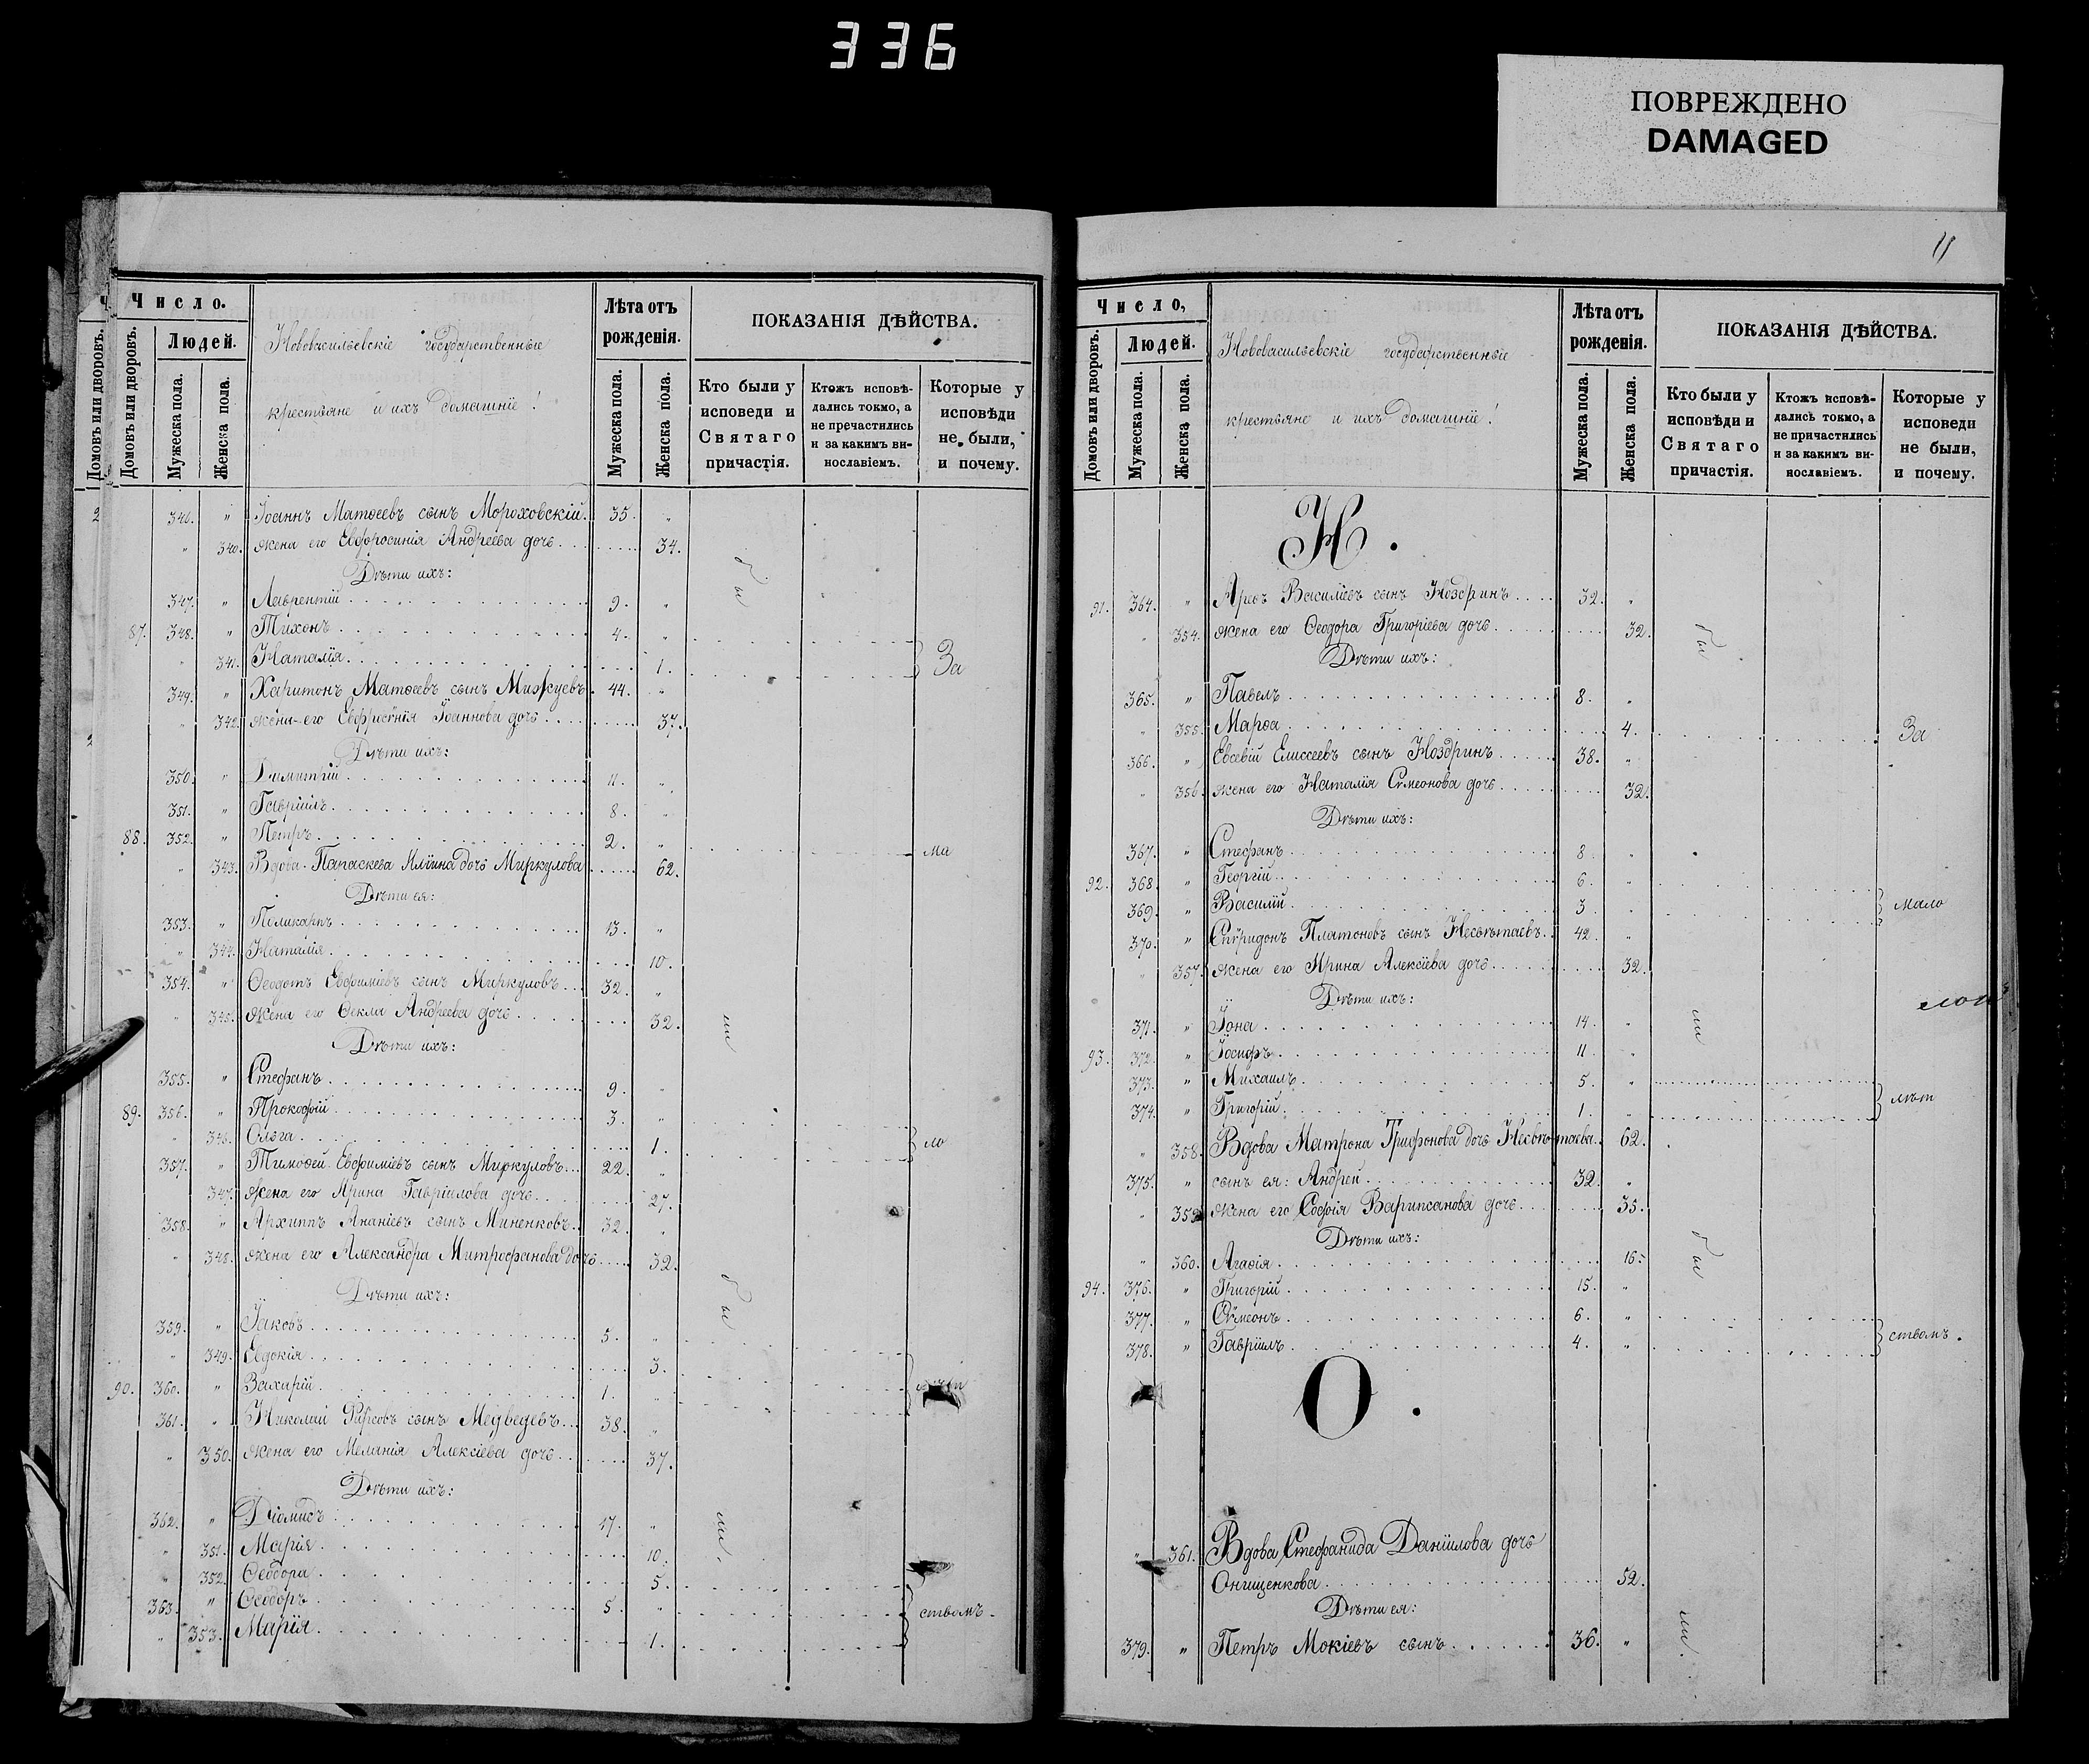 336
ПОВРЕЖДЕНО
DAMAGED
Число.
Домовъ или дворовъ.
Домовъ или дворовъ.
Людей.
Мужеска пола.
Женска пола.
Нововасильевскіе государственные
крестьяне и ихъ домашніе!
Лѣта отъ рожденія.
Мужеска пола.
Женска пола.
ПОКАЗАНІЯ ДѢЙСТВА.
Кто были у исповеди и Святаго причастія.
Ктожъ исповѣдались токмо, а не пречастились и за какимъ винославіемъ.
Которые у исповѣди не были, и почему.
2 346. " Іоаннъ Матѳеевъ сынъ Мороховскій. 35. "
" 340. жена его Евфросинія Андреева дочь 34.
Дѣти ихъ:
347. " Лаврентій 9. "
87. 348. " Тихонъ 4. "
" 341. Наталія 1. За
349. " Харитонъ Матѳеевъ сынъ Мизжуевъ. 44. "
" 342. жена его Евфросинія Іоаннова дочь 37.
Дѣти ихъ:
350. " Димитрій 11. "
351. " Гавріилъ 8. "
88. 352. " Петръ 2. " ма
" 343. Вдова Параскева Иліина дочь Миркулова 62.
Дѣти ея:
353. " Поликарпъ 13. "
" 344. Наталія 10.
354. " Ѳеодотъ Евфиміевъ сынъ Миркуловъ 32. "
" 345. жена его Ѳекла Андреева дочь 32.
Дѣти ихъ:
355. " Стефанъ 9. "
89. 356. " Прокофій 3. "
" 346. Ольга 1. ло
357. " Тимоѳей Евфиміевъ сынъ Миркуловъ 22. "
" 347. жена его Ирина Гавріилова дочь 27.
358. " Архиппъ Ананіевъ сынъ Миненковъ 32. "
" 348. жена его Александра Митрофанова дочь 32.
Дѣти ихъ:
359. " Іаковъ 5. "
" 349. Евдокія 3.
90. 360. " Захарій 1. "
361. " Николай Фирсовъ сынъ Медведевъ 38. "
" 350. жена его Меланія Алексіева дочь 37.
Дѣти ихъ:
362. " Діомидъ 17. "
" 351. Марія 10.
" 352. Ѳеодора 5.
363. " Ѳеодоръ 5. " ствомъ.
" 353. Марія 1.
бы
ли
бы
ли.
11
Число,
Домовъ или дворовъ.
Людей.
Мужеска пола.
Женска пола.
Нововасильевскіе государственные
крестьяне и ихъ домашніе!
Лѣта отъ рожденія.
Мужеска пола.
Женска пола.
ПОКАЗАНІЯ ДѢЙСТВА.
Кто были у исповѣди и Святаго причастія.
Ктожъ исповѣдались токмо, а не причастились и за какимъ винославіемъ.
Которые у исповеди не были, и почему.
Н.
91. 364. " Арефъ Василіевъ сынъ Ноздринъ 32. "
" 354. жена его Ѳеодора Григоріева дочь 32.
Дѣти ихъ:
365. " Павелъ 8. "
" 355. Марѳа 4. За
366. " Евсевій Елиссеевъ сынъ Ноздринъ 38. "
" 356. жена его Наталія Сѵмеонова дочь 32.
Дѣти ихъ:
367. " Стефанъ 8. "
92. 368. " Георгій 6. "
369. " Василій 3. " мало
370. " Спѵридонъ Платоновъ сынъ Несвѣтаевъ 42. "
" 357. жена его Ирина Алексіева дочь 32.
Дѣти ихъ:
371. " Іона 14. "
93. 372. " Іосифъ 11. "
373. " Михаилъ 5. "
374. " Григорій 1. " лѣт
" 358. Вдова Матрона Трифонова дочь Несвѣтаева 62.
375. " сынъ ея: Андрей 32. "
" 359. жена его Софія Варипсанова дочь 35.
Дѣти ихъ:
" 360. Агаѳія 16.
94. 376. " Григорій 15. "
377. " Сѵмеонъ 6. "
378. " Гавріилъ 4. " ствомъ.
О.
" 361. Вдова Стефанида Даніилова дочь
Онищенкова 52.
Дѣти ея:
379. " Петръ Мокіевъ сынъ 36. "
бы
ли
бы
ли.